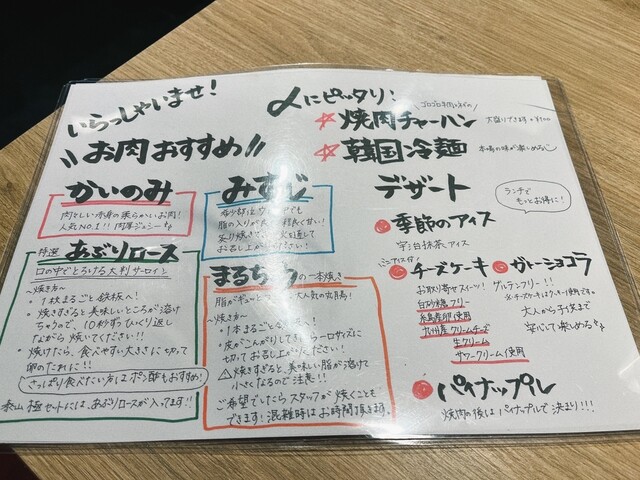 いらっしゃいませ!
お肉おすすめ!!
かいのみ
肉らしい赤身の柔らかいお肉!
人気NO.1!! 肉厚ジューシー
みすじ
脂の入りが
お召し上がりください!
特選 あぶりロース
口の中でとろける大判サーロイン
~焼き方~
・1枚まるごと鉄板へ!
・焼きすぎると美味しいところが溶け
ちゃうので、10秒ずつひっくり返し
ながら焼いてください!!
・焼けたら、食べやすい大きさに切って
卵のたれに!!
さっぱり食べたい方はポン酢もおすすめ!
泰山 極セットには、あぶりロースが入ってます!!
の一本焼き
脂がギュ
大人気の
~焼き方~
・1本まるごと
・皮がこんがりしてきたら一口サイズに
切ってお召し上がりください!
⚠焼きすぎると、美味しい脂が溶けて
小さくなるので注意!!
ご希望でしたらスタッフが焼くことも
できます!混雑時はお時間頂きます。
〆にピッタリ!
☆焼肉チャーハン 大盛りできます +¥100
☆韓国冷麺 本場の味が楽しめる
デザート
ランチで
もっとお得に!
季節のアイス
宇治抹茶アイス
チーズケーキ
お取り寄せスイーツ!
白砂糖フリー
糸島産卵使用
九州産クリームチーズ
生クリーム
サワークリーム使用
ガトーショコラ
グルテンフリー!!
大人から子供まで
安心して楽しめる
パイナップル
焼肉の後はパイナップルで決まり!!!